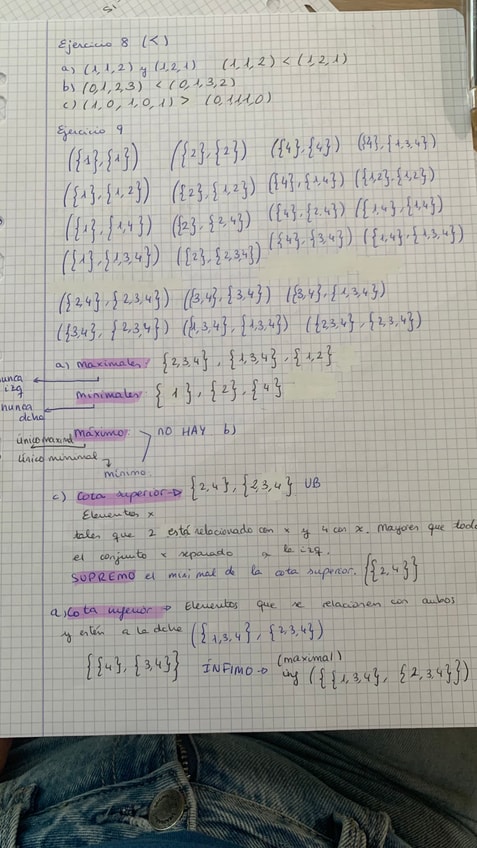 Ejercicio 8 (<)
a) (1,1,2) y (1,2,1) (1,1,2) < (1,2,1)
b) (0,1,2,3) < (0,1,3,2)
c) (1,0,1,0,1) > (0,1,1,1,0)
Ejercicio 9
({1},{1}) ({2},{2}) ({4},{4}) ({4},{1,3,4})
({1},{1,2}) ({2},{1,2}) ({4},{1,4}) ({1,2},{1,2})
({1},{1,4}) ({2},{2,4}) ({4},{2,4}) ({1,4},{1,4})
({1},{1,3,4}) ({2},{2,3,4}) ({4},{3,4}) ({1,4},{1,3,4})
({2,4},{2,3,4}) ({3,4},{3,4}) ({3,4},{1,3,4})
({3,4},{2,3,4}) ({1,3,4},{1,3,4}) ({2,3,4},{2,3,4})
a) maximales: {2,3,4}, {1,3,4}, {1,2}
nunca
izq
minimales: {1}, {2}, {4}
nunca
dcha
Máximo. NO HAY b)
único maximal
único minimal
mínimo.
c) Cota superior → {2,4}, {2,3,4} UB
Elementos x
tales que 2 está relacionado con x y 4 con x. Mayores que todo
el conjunto x separado a la izq.
SUPREMO el minimal de la cota superior. {{2,4}}
a) Cota inferior → Elementos que se relacionen con ambos
y estén a la dcha ({1,3,4}, {2,3,4})
{{4}, {3,4}} ÍNFIMO → (maximal) inf ({{1,3,4}, {2,3,4}})